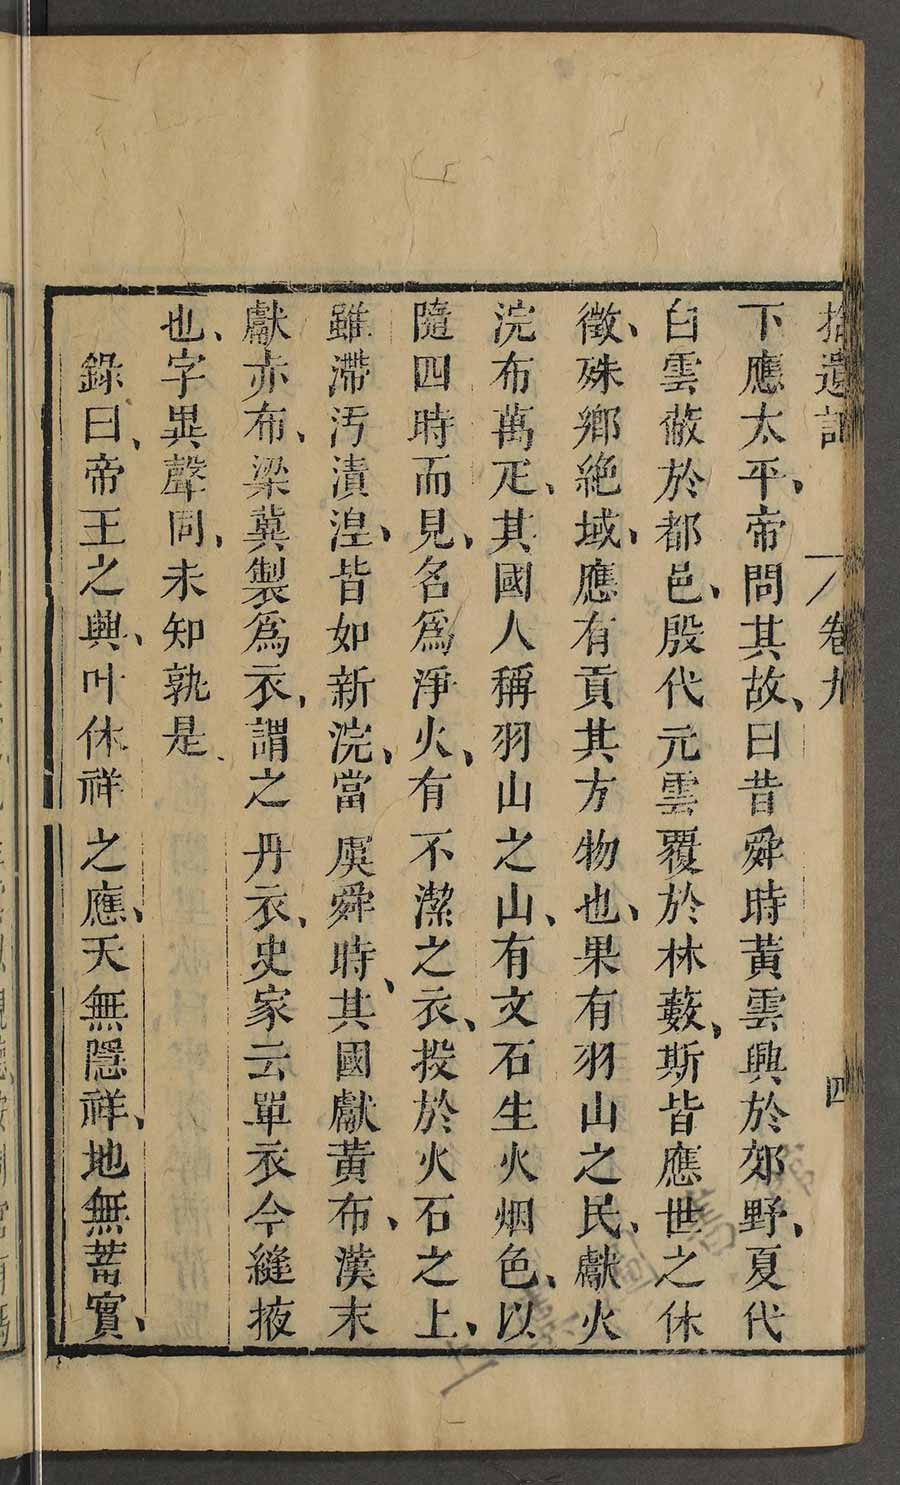 拾遺記 卷九 四
下應太平、帝問其故、曰昔舜時黃雲興於郊野、夏代
白雲蔽於都邑、殷代元雲覆於林藪、斯皆應世之休
徵、殊鄉絶域、應有貢其方物也、果有羽山之民、獻火
浣布萬疋、其國人稱羽山之山、有文石生火烟色、以
隨四時而見、名爲淨火、有不潔之衣、投於火石之上、
雖滯汚漬湼、皆如新浣、當虞舜時、其國獻黃布、漢末
獻赤布、梁冀製爲衣、謂之丹衣、史家云單衣今縫掖
也、字異聲同、未知孰是、
錄曰、帝王之興、叶休祥之應、天無隱祥、地無蓄寶、